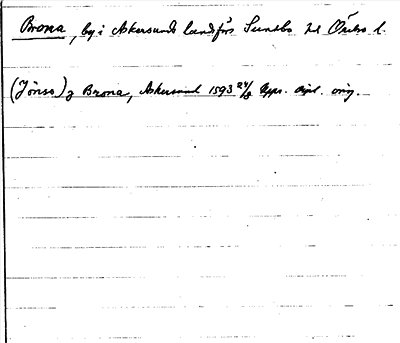 Brona, by i Askersunds landsförs Sundbo hd Örebro l.
(Jönss) y Brona, Askersund 1593 24/8 Upps. dipl. orig.